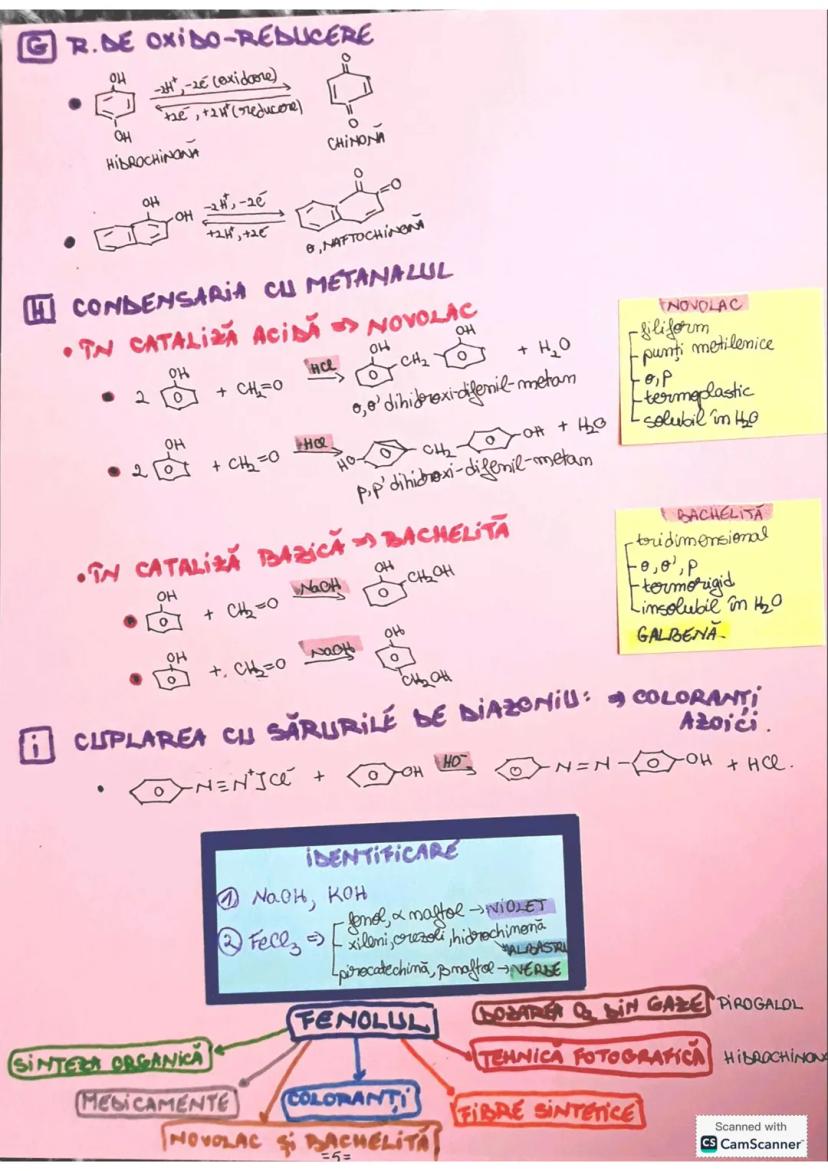 G R. DE OXIDO-REDUCERE
OH
-2H⁺, -2e⁻ (oxidare)
+2e⁻, +2H⁺ (reducere)
O
OH
O
HIDROCHINONĂ
CHINONĂ
OH
OH
-2H⁺, -2e⁻
+2H⁺, +2e⁻
O
=O
O, NAFTOCHINONĂ
H CONDENSARIA CU METANALUL
• ÎN CATALIZĂ ACIDĂ => NOVOLAC
• 2 OH + CH₂=O HCl → OH CH₂ OH + H₂O
o,o' dihidroxi-difenil-metan
• 2 OH + CH₂=O HCl → HO- -CH₂- -OH + H₂O
p,p' dihidroxi-difenil-metan
NOVOLAC
filiform
punți metilenice
o,p
termoplastic
solubil în H₂O
• ÎN CATALIZĂ BAZICĂ => BACHELITĂ
• OH + CH₂=O NaOH → OH CH₂OH
• OH + CH₂=O NaOH → OH CH₂OH
BACHELITĂ
tridimensional
o,o',p
termorigid
insolubil în H₂O
GALBENĂ.
i CUPLAREA CU SĂRURILE DE DIAZONIU: => COLORANȚI
AZOICI.
• -N≡N⁺]Cl⁻ + -OH HO⁻ → -N=N- -OH + HCl.
IDENTIFICARE
1) NaOH, KOH
2) FeCl₃ => fenol, α naftol → VIOLET
xileni, crezoli, hidrochinonă
→ALBASTRU
pirocatechină, β naftol → VERDE
FENOLUL
DOZAREA O₂ DIN GAZE PIROGALOL
SINTEZA ORGANICĂ
TEHNICĂ FOTOGRAFICĂ HIDROCHINONA
MEDICAMENTE
COLORANȚI
FIBRE SINTETICE
NOVOLAC ȘI BACHELITĂ
=5=
Scanned with
CS CamScanner